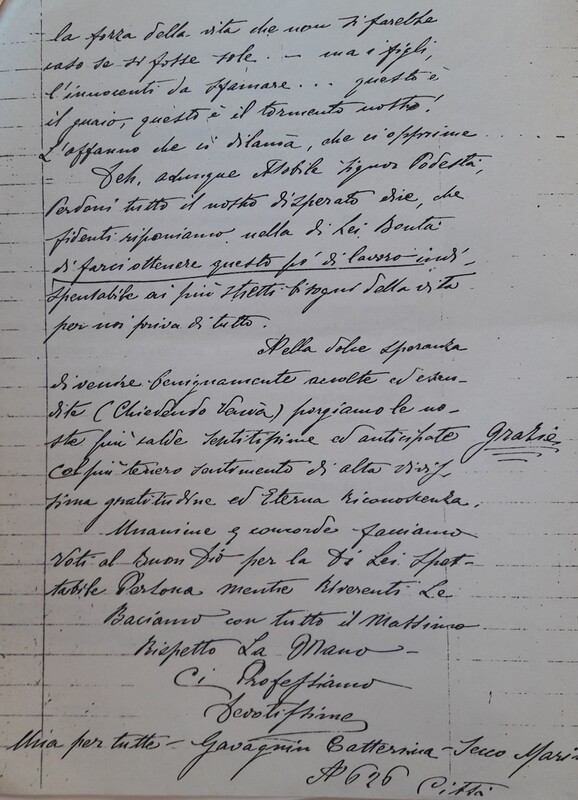 la forza della vita che non si farebbe
caso se si fosse sole. – ma i figli,
l'innocenti da sfamare... questo è
il guaio, questo è il tormento nostro!
L'affanno che ci dilania, che ci opprime....
Deh, adunque Nobile Signor Podestà,
Perdoni tutto il nostro disperato dire, che
fidenti riponiamo nella di Lei Bontà
di farci ottenere questo pò di lavoro indi-
spensabile ai più stretti bisogni della vita
per noi priva di tutto.
Nella dolce speranza
di venire benignamente accolte ed esau-
dite (Chiedendo Venia) porgiamo le no-
stre più calde sentitissime ed anticipate Grazie
Col più tenero sentimento di alta vivis-
sima gratitudine ed Eterna Riconoscenza.
Unanime e concorde facciamo
Voti al Buon Dio per la Di Lei Spet-
tabile Persona mentre Riverenti Le
Baciamo con tutto il Massimo
Rispetto La Mano –
Ci Professiamo
Devotissime
Una per tutte – Gavagnin Catterina – Secco Mari
N 626 Città